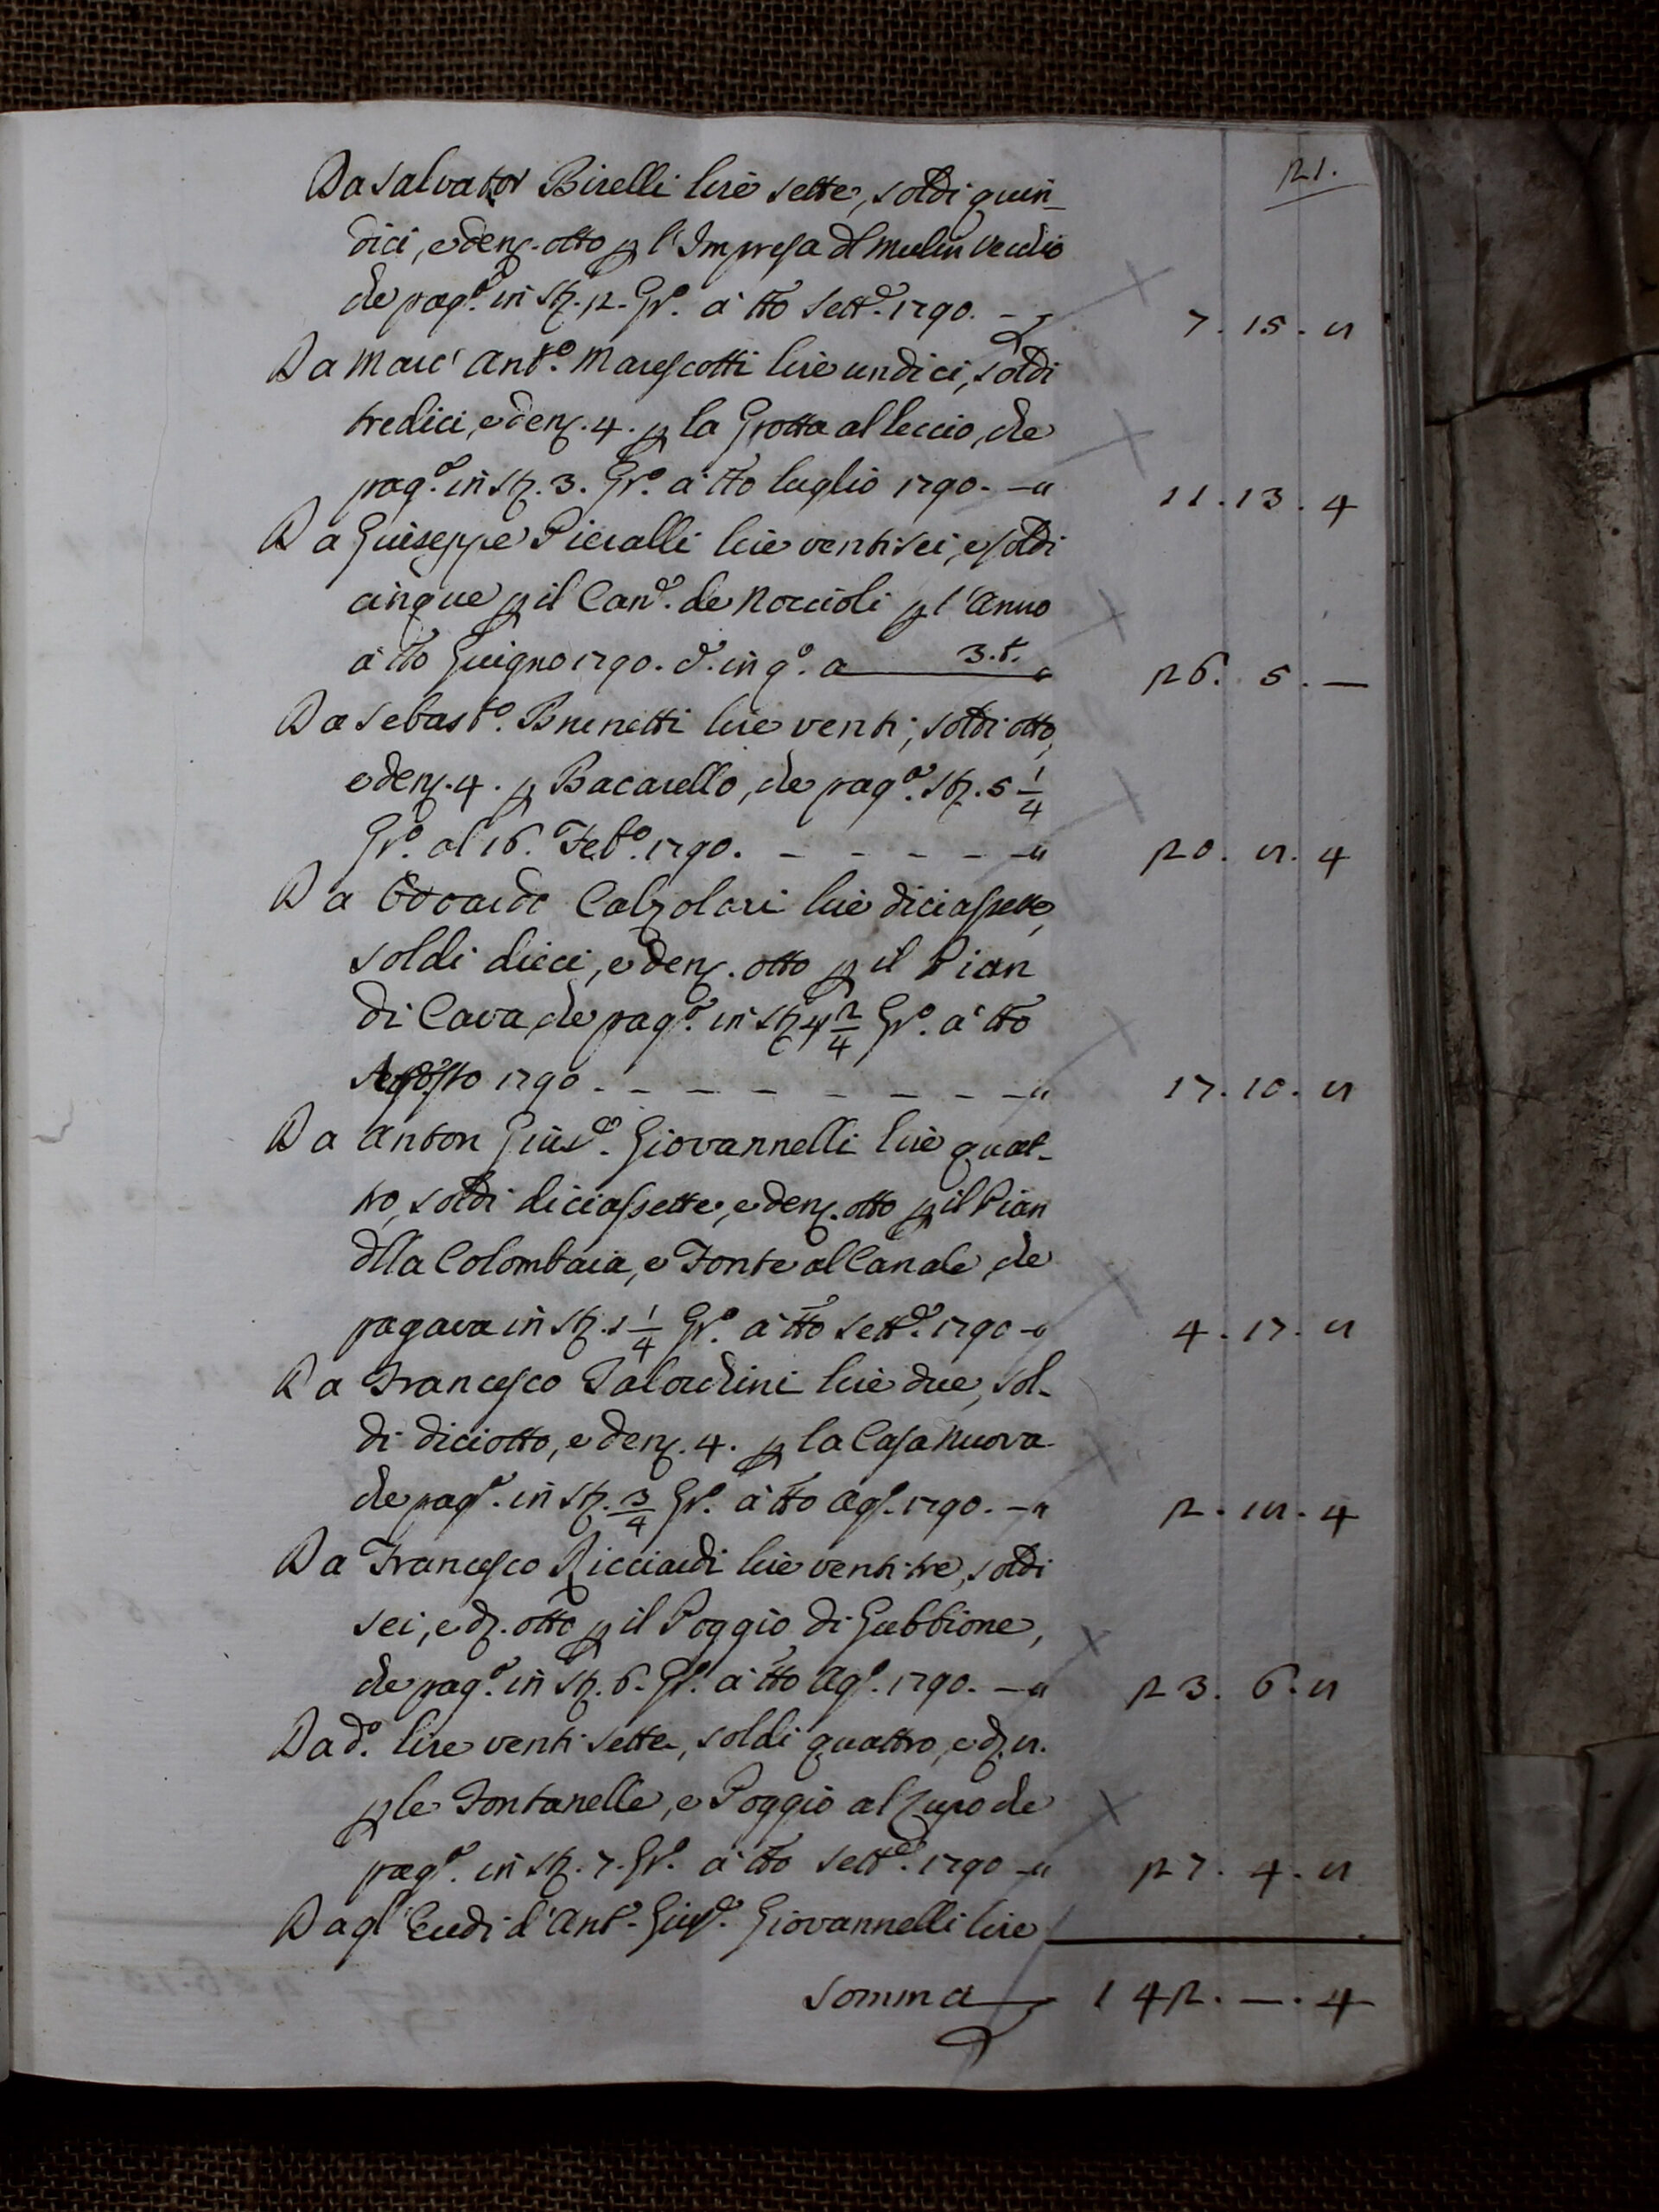 21.
Da Salvator Birelli lire sette, soldi quin-
dici, e den. otto p l'Impresa dl Mulin Vecchio
che pag.a in st. 2. Gr.o a tto Sett.e 1790. - 7. 15. 8
Da Marc' Ant.o Marescotti lire undici, soldi
tredici, e den. 4. p la Grotta al leccio, che
pag.a in st. 3. Gr.o a tto luglio 1790. - 11. 13. 4
Da Giuseppe Pieralli lire ventisei, e soldi
cinque p il Can.e de Noccioli p l'Anno
a tto Giugno 1790. d.o in q.o a 3.t. 26. 5. —
Da Sebast.o Brunetti lire venti, soldi otto,
e den. 4. p Bacarello, che pag.a st. 5 1/4
Gr.o al 16. Feb.o 1790. - - - - - 20. 8. 4
Da Edoardo Calzolari lire diciassette,
soldi dieci, e den. otto p il Pian
di Cava, che pag.a in st. 4 2/4 Gr.o a tto
Agosto 1790 - - - - - - - - 17. 10. 8
Da Anton Gius.e Giovannelli lire quat-
tro, soldi diciassette, e den. otto p il Pian
dlla Colombaia, e Fonte al Canale, che
pagava in st. 1 1/4 Gr.o a tto Sett.e 1790 - 4. 17. 8
Da Francesco Talordini lire due, sol-
di diciotto, e den. 4. p la Casa Nuova
che pag.a in st. 3/4 Gr.o a tto Ag.o 1790. - 2. 18. 4
Da Francesco Ricciardi lire ventitre, soldi
sei, e d. otto p il Poggio di Gubbione,
che pag.a in st. 6. Gr.o a tto Ag.o 1790. - 23. 6. 8
Da d.o lire venti sette, soldi quattro, e d. 8.
p le Fontanelle, e Poggio al che
pag.a in st. 7. Gr.o a tto Sett.e 1790 - 27. 4. 8
Dagl' Eredi d'Ant.o Gius.e Giovannelli lire
Somma 142. —. 4